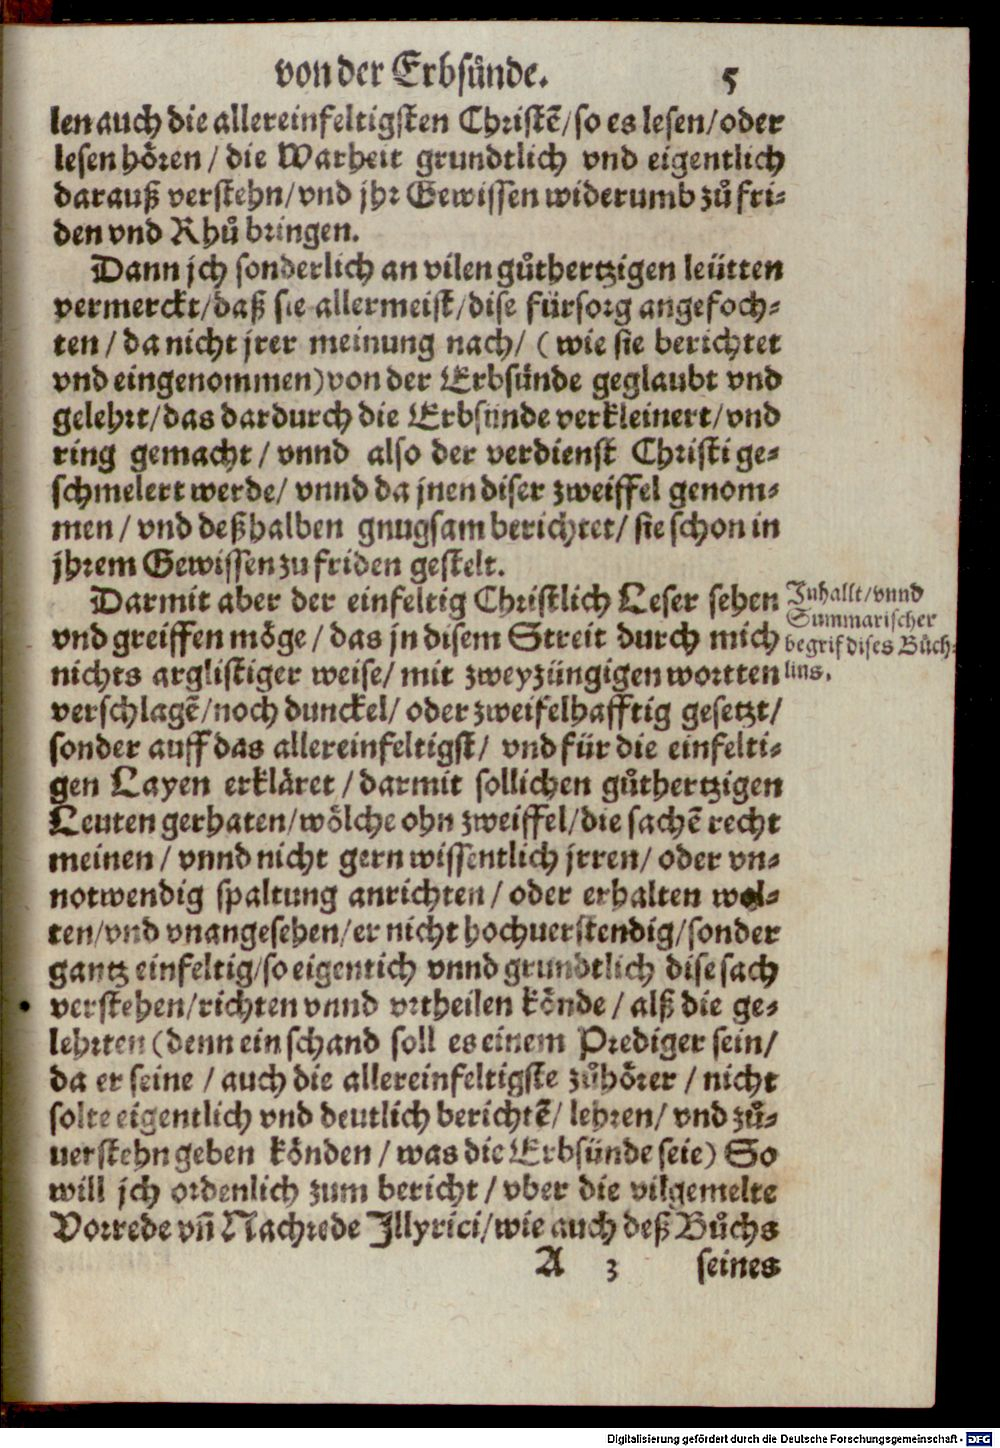 von der Erbsünde. 5
len auch die allereinfeltigsten Christẽ/so es lesen/oder
lesen hören / die Warheit grundtlich vnd eigentlich
darauß verstehn/vnd jhr Gewissen widerumb zů fri⸗
den vnd Rhů bringen.
Dann jch sonderlich an vilen gůthertzigen leütten
vermerckt/daß sie allermeist/dise fürsorg angefoch⸗
ten / da nicht jrer meinung nach/ (wie sie berichtet
vnd eingenommen) von der Erbsünde geglaubt vnd
gelehrt/das dardurch die Erbsünde verkleinert/vnd
ring gemacht / vnnd also der verdienst Christi ge⸗
schmelert werde/ vnnd da jnen diser zweiffel genom⸗
men / vnd deßhalben gnugsam berichtet/ sie schon in
jhrem Gewissen zu friden gestelt.
Darmit aber der einfeltig Christlich Leser sehen
vnd greiffen möge / das jn disem Streit durch mich
nichts arglistiger weise/ mit zweyzüngigen wortten
verschlagẽ/noch dunckel/ oder zweifelhafftig gesetzt/
sonder auff das allereinfeltigst/ vnd für die einfelti⸗
gen Layen erkläret / darmit sollichen gůthertzigen
Leuten gerhaten/wölche ohn zweiffel/die sachẽ recht
meinen / vnnd nicht gern wissentlich jrren/ oder vn⸗
notwendig spaltung anrichten / oder erhalten wol⸗
ten/vnd vnangesehen/er nicht hochuerstendig/sonder
gantz einfeltig/so eigentich vnnd grundtlich dise sach
verstehen/richten vnnd vrtheilen könde / alß die ge⸗
lehrten (denn ein schand soll es einem Prediger sein/
da er seine / auch die allereinfeltigste zůhörer / nicht
solte eigentlich vnd deutlich berichtẽ/ lehren/ vnd zů⸗
uerstehn geben könden / was die Erbsünde seie) So
will jch ordenlich zum bericht / vber die vilgemelte
Vorrede vñ Nachrede Illyrici/wie auch deß Bůchs
A 3 seines
Inhallt/vnnd
Summarischer
begrif dises Büch⸗
lins.
Digitalisierung gefördert durch die Deutsche Forschungsgemeinschaft - DFG